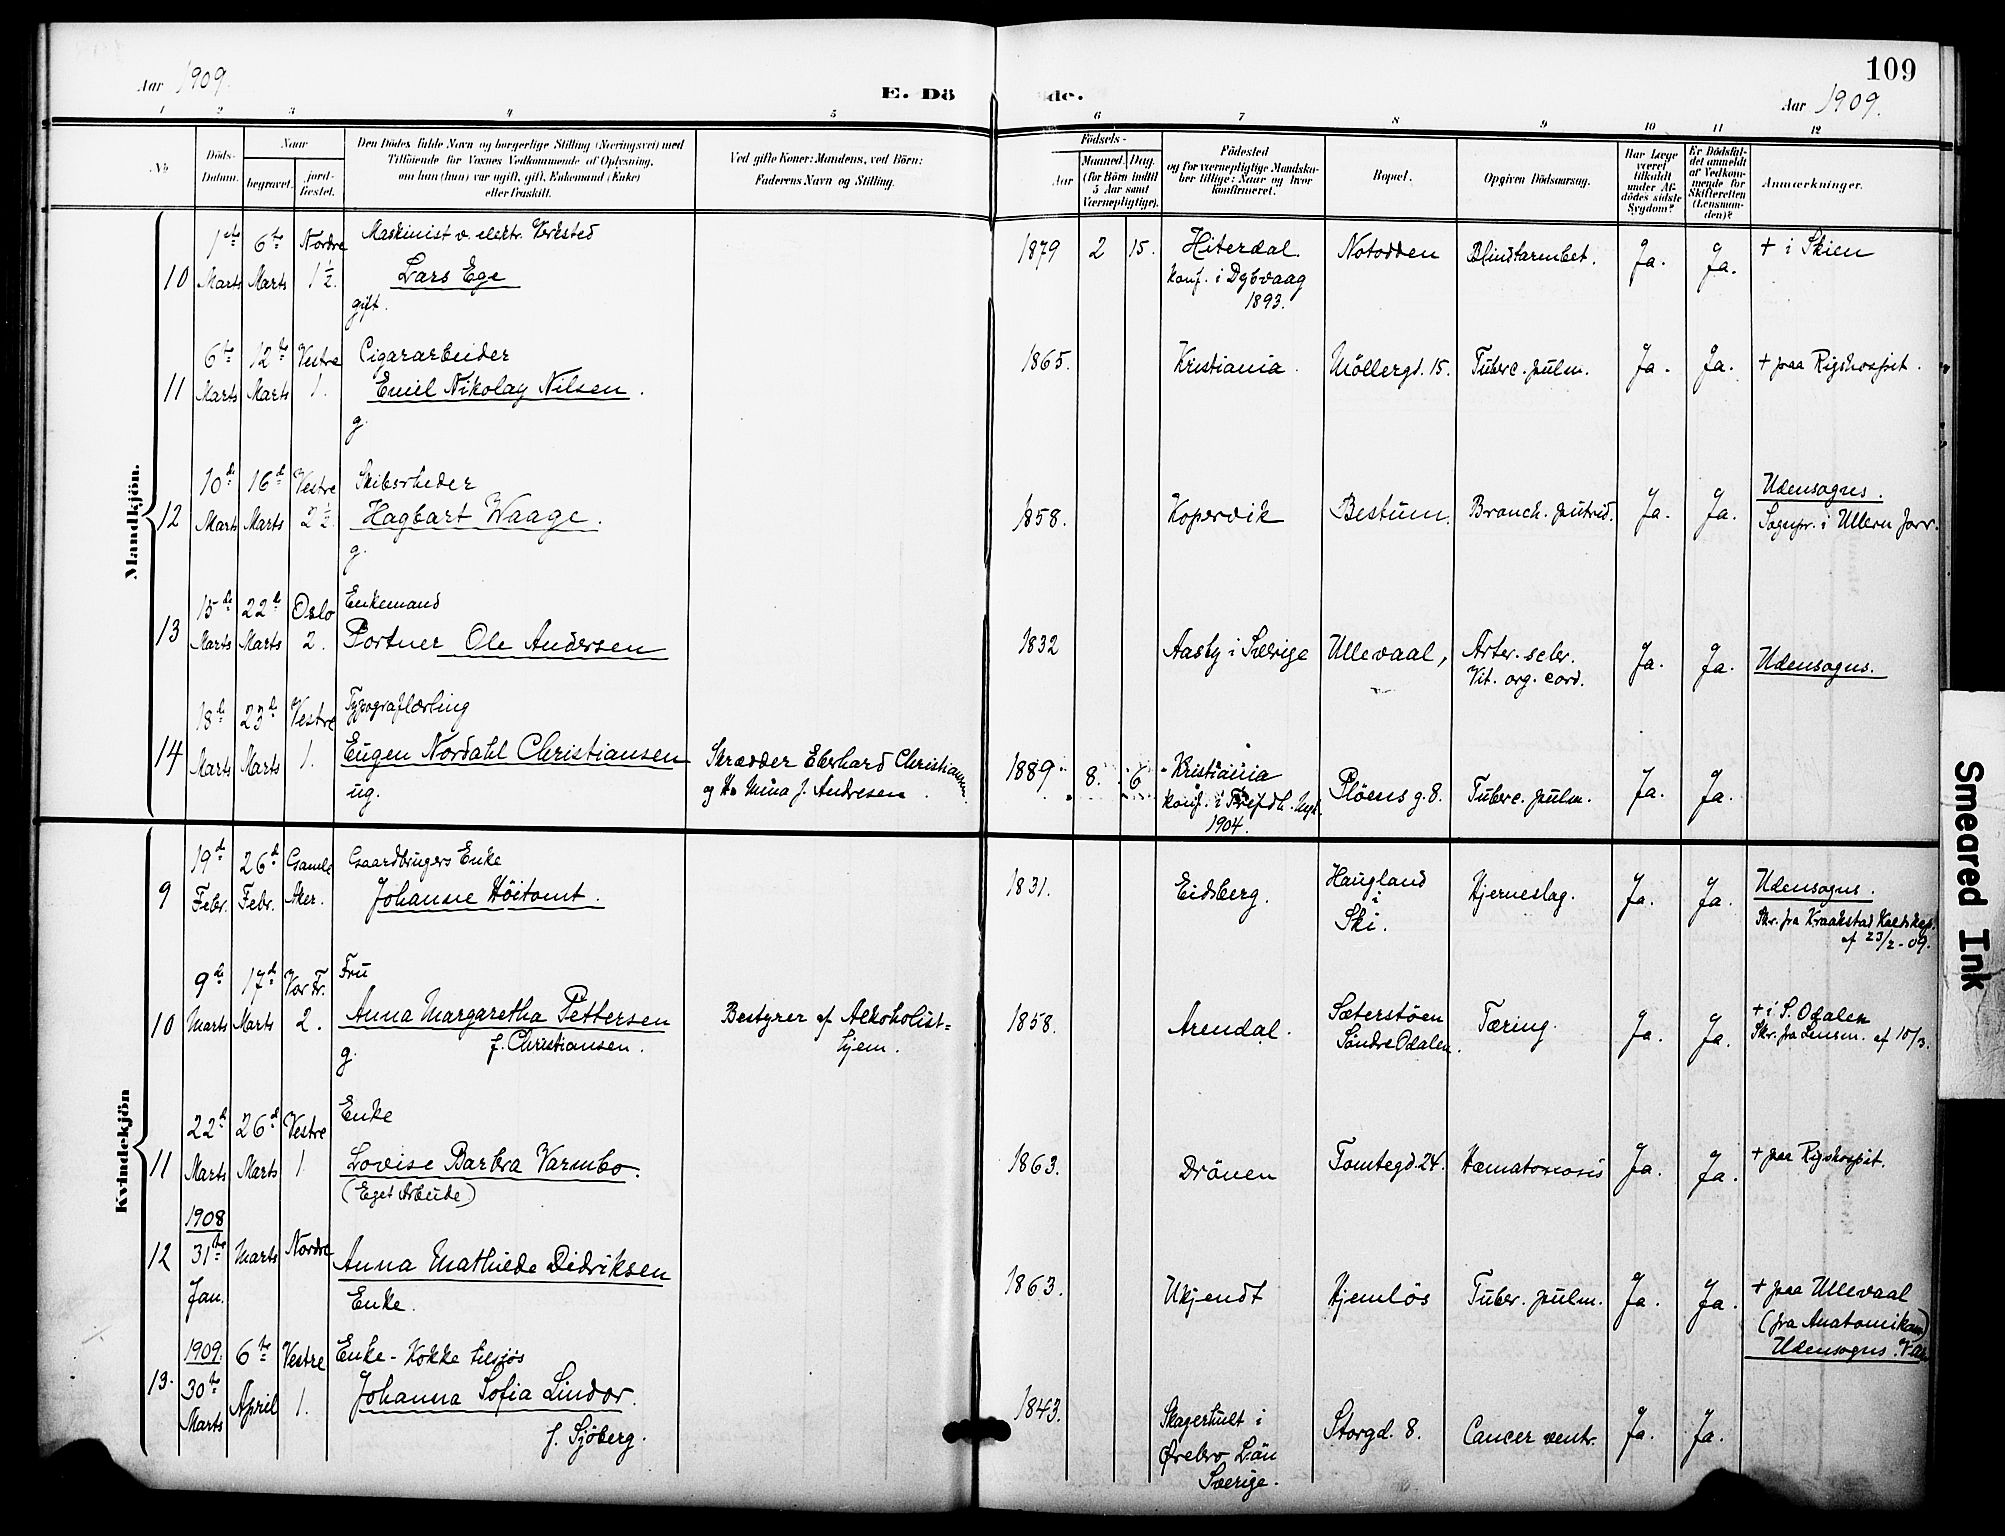 109
Aar 1909.
E. Döde.
Aar 1909.
1 2 3 4 5 6 7 8 9 10 11 12
No
Döds-
Datum.
Naar
begravet.
jord-
fæstet.
Den Dödes fulde Navn og borgerlige Stilling (Næringsvei) med
Tilföiende for Voxnes Vedkommende af Oplysning,
om han (hun) var ugift, gift, Enkemand (Enke)
eller fraskilt.
Ved gifte Koner: Mandens, ved Börn:
Faderens Navn og Stilling.
Födsels-
Aar
Maaned. Dag.
(for Börn indtil
5 Aar samt
Værnepligtige).
Födested
og for værnepligtige Mandska-
ber tillige: Naar og hvor
konfirmeret.
Bopæl.
Opgiven Dödsaarsag.
Har Læge
været
tilkaldt
under Af-
dödes sidste
Sygdom?
Er Dödsfal-
det anmeldt
af Vedkom-
mende for
Skifteretten
(Lensman-
den)?
Anmærkninger.
Mandkjön.
10
1ste Marts
6te Marts
Nordre 1½.
Maskinist v. elektr. Verksted
Lars Ege
gift.
1879 2 15.
Hiterdal.
Konf. i Dybvaag
1893.
Notodden
Blindtarmbet.
Ja.
Ja.
+ i Skien
11
6te Marts
12te Marts
Vestre 1.
Cigararbeider
Emil Nikolay Nilsen.
g.
1865.
Kristiania.
Möllergd. 15.
Tuberc. pulm.
Ja.
Ja.
+ paa Rigshospit.
12
10de Marts
16de Marts
Vestre 2½
Skibsrheder
Hagbart Waage.
g.
1858.
Kopervik
Bestum.
Bronch. putrid.
Ja.
Ja.
Udensogns.
Sognpr. i Ullern forr.
13
15de Marts
22de Marts
Oslo 2.
Enkemand
Portner Ole Andersen
1832
Aasby i Sverige
Ullevaal,
Arter. scler.
Vit. org. cord.
Ja.
Ja.
Udensogns.
14
18de Marts
23de Marts
Vestre 1.
Typograflærling
Eugen Nordahl Christiansen
ug.
Skrædder Eberhard Christiansen
og H. Mina J. Andresen.
1889 8. 6
Kristiania
1904.
Plöens g. 8.
Tuberc. pulm.
Ja.
Ja.
Kvindekjön
9
19de Febr.
26de Febr.
Gamle Aker.
Gaardbrugers Enke
Johanne Höitomt.
1831.
Eidsberg.
Haugland
i
Ski.
Hjerneslag.
Ja.
Ja.
Udensogns.
Skr. fra Kraakstad
af 23/2-09.
10
9de Marts
17de Marts
Vor Fr. 2.
Fru
Anna Margaretha Pettersen
f. Christiansen.
g.
Bestyrer af Alkoholist-
hjem.
1858.
Arendal.
Sæterstöen
Söndre Odalen.
Tæring.
Ja.
Ja.
+ i S. Odalen
Skr. fra Lensm. af 10/3.
11
22de Marts
26de Marts
Vestre 1
Enke
Lovise Barbra Varmbo.
(Eget Arbeide)
1863.
Drönen
Tomtegd. 24.
Ja.
Ja.
+ paa Rigshospit.
12
1908
31te Jan.
Marts
Nordre
Anna Mathilde Didriksen
Enke.
1863.
Ukjendt
Hjemlös
Tuber. pulm.
Ja.
Ja.
+ paa Ullevaal
(fra Anatomikam)
Udensogns.
13.
1909.
30te Marts
6te April
Vestre 1.
Enke - Kokke tilsjös
Johanna Sofia Lindor.
f. Sjöberg.
1843.
Skagerhult i
Ørebro Län
Sverige.
Storgd. 8.
Cancer ventr.
Ja.
Ja.
Smeared Ink